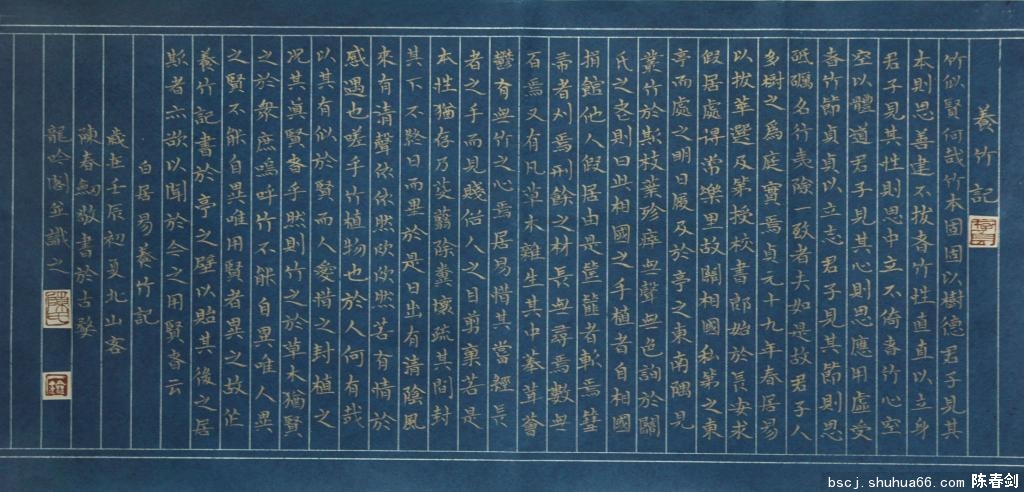 養竹記
竹似賢何哉竹本固固以樹德君子見其
本則思善建不拔者竹性直直以立身
君子見其性則思中立不倚者竹心空
空以體道君子見其心則思應用虛受
者竹節貞貞以立志君子見其節則思
砥礪名行夷險一致者夫如是故君子人
多樹之為庭實焉貞元十九年春居易
以拔萃選及第授校書郎始於長安求
假居處得常樂里故關相國私第之東
亭而處之明日屨及於亭之東南隅見
叢竹於斯枝葉殄瘁無聲無色詢於關
氏之老則曰此相國之手植者自相國
捐館他人假居由是筐篚者斬焉篲
帚者刈焉刑餘之材長無尋焉數無
百焉又有凡草木雜生其中菶茸薈
鬱有無竹之心焉居易惜其嘗經長
者之手而見賤俗人之目剪棄若是
本性猶存乃芟蘙除糞壤疏其間封
其下不終日而畢於是日出有清陰風
來有清聲依依然欣欣然若有情於
感遇也嗟乎竹植物也於人何有哉
以其有似於賢而人愛惜之封植之
況其真賢者乎然則竹之於草木猶賢
之於衆庶嗚呼竹不能自異唯人異
之賢不能自異唯用賢者異之故作
養竹記書於亭之壁以貽其後之居
斯者亦欲以聞於今之用賢者云
白居易養竹記
歲在壬辰初夏北山客
陳春劍敬書於古婺
龍吟閣並識之
bscj.shuhua66.com 陈春剑